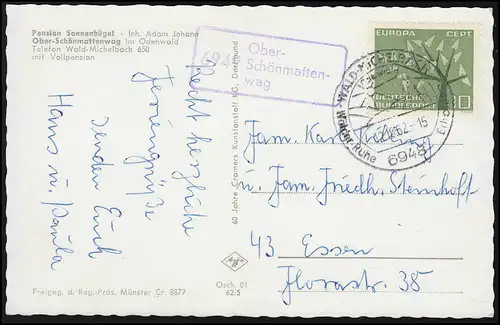 Pension Sonnerhügel · Inh. Adam Johann
Ober-Schönmattenwag im Odenwald
Telefon Wald-Michelbach 650
mit Vollpension
Recht herzliche
Feriengrüße
senden Euch
Hans u. Paula
Freigeg. d. Reg.-Präs. Münster Cr. 8879
60 Jahre Cramers Kunstanstalt KG, Dortmund
Qsch 01
62/5
694
Ober-
Schönmatten-
wag
EUROPA CEPT
DEUTSCHE
BUNDESPOST
10
WALD-MICHELBACH
62-15
6948
Fam. Karl
u. Fam. Friedh. Steinhoff
43 Essen
Florastr. 38